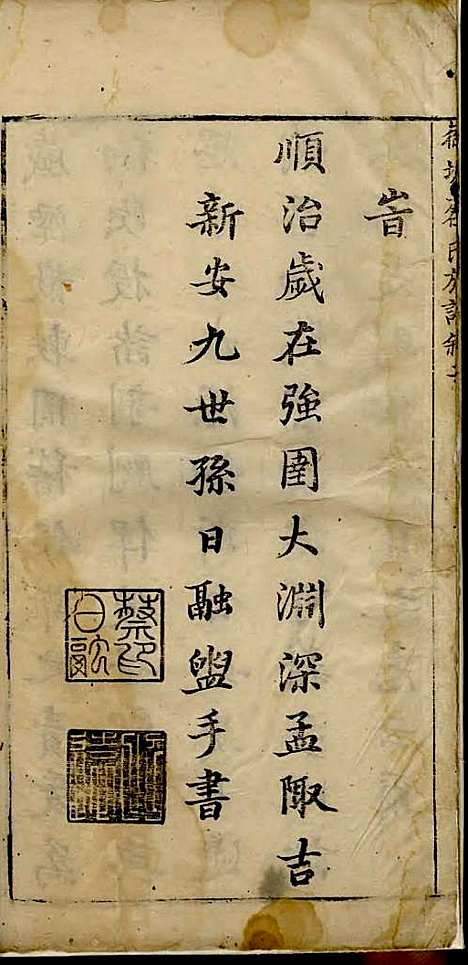 蔡氏族譜敘
旹
順治歲在強圉大淵深孟陬吉
新安九世孫日融盥手書
蔡印
日融